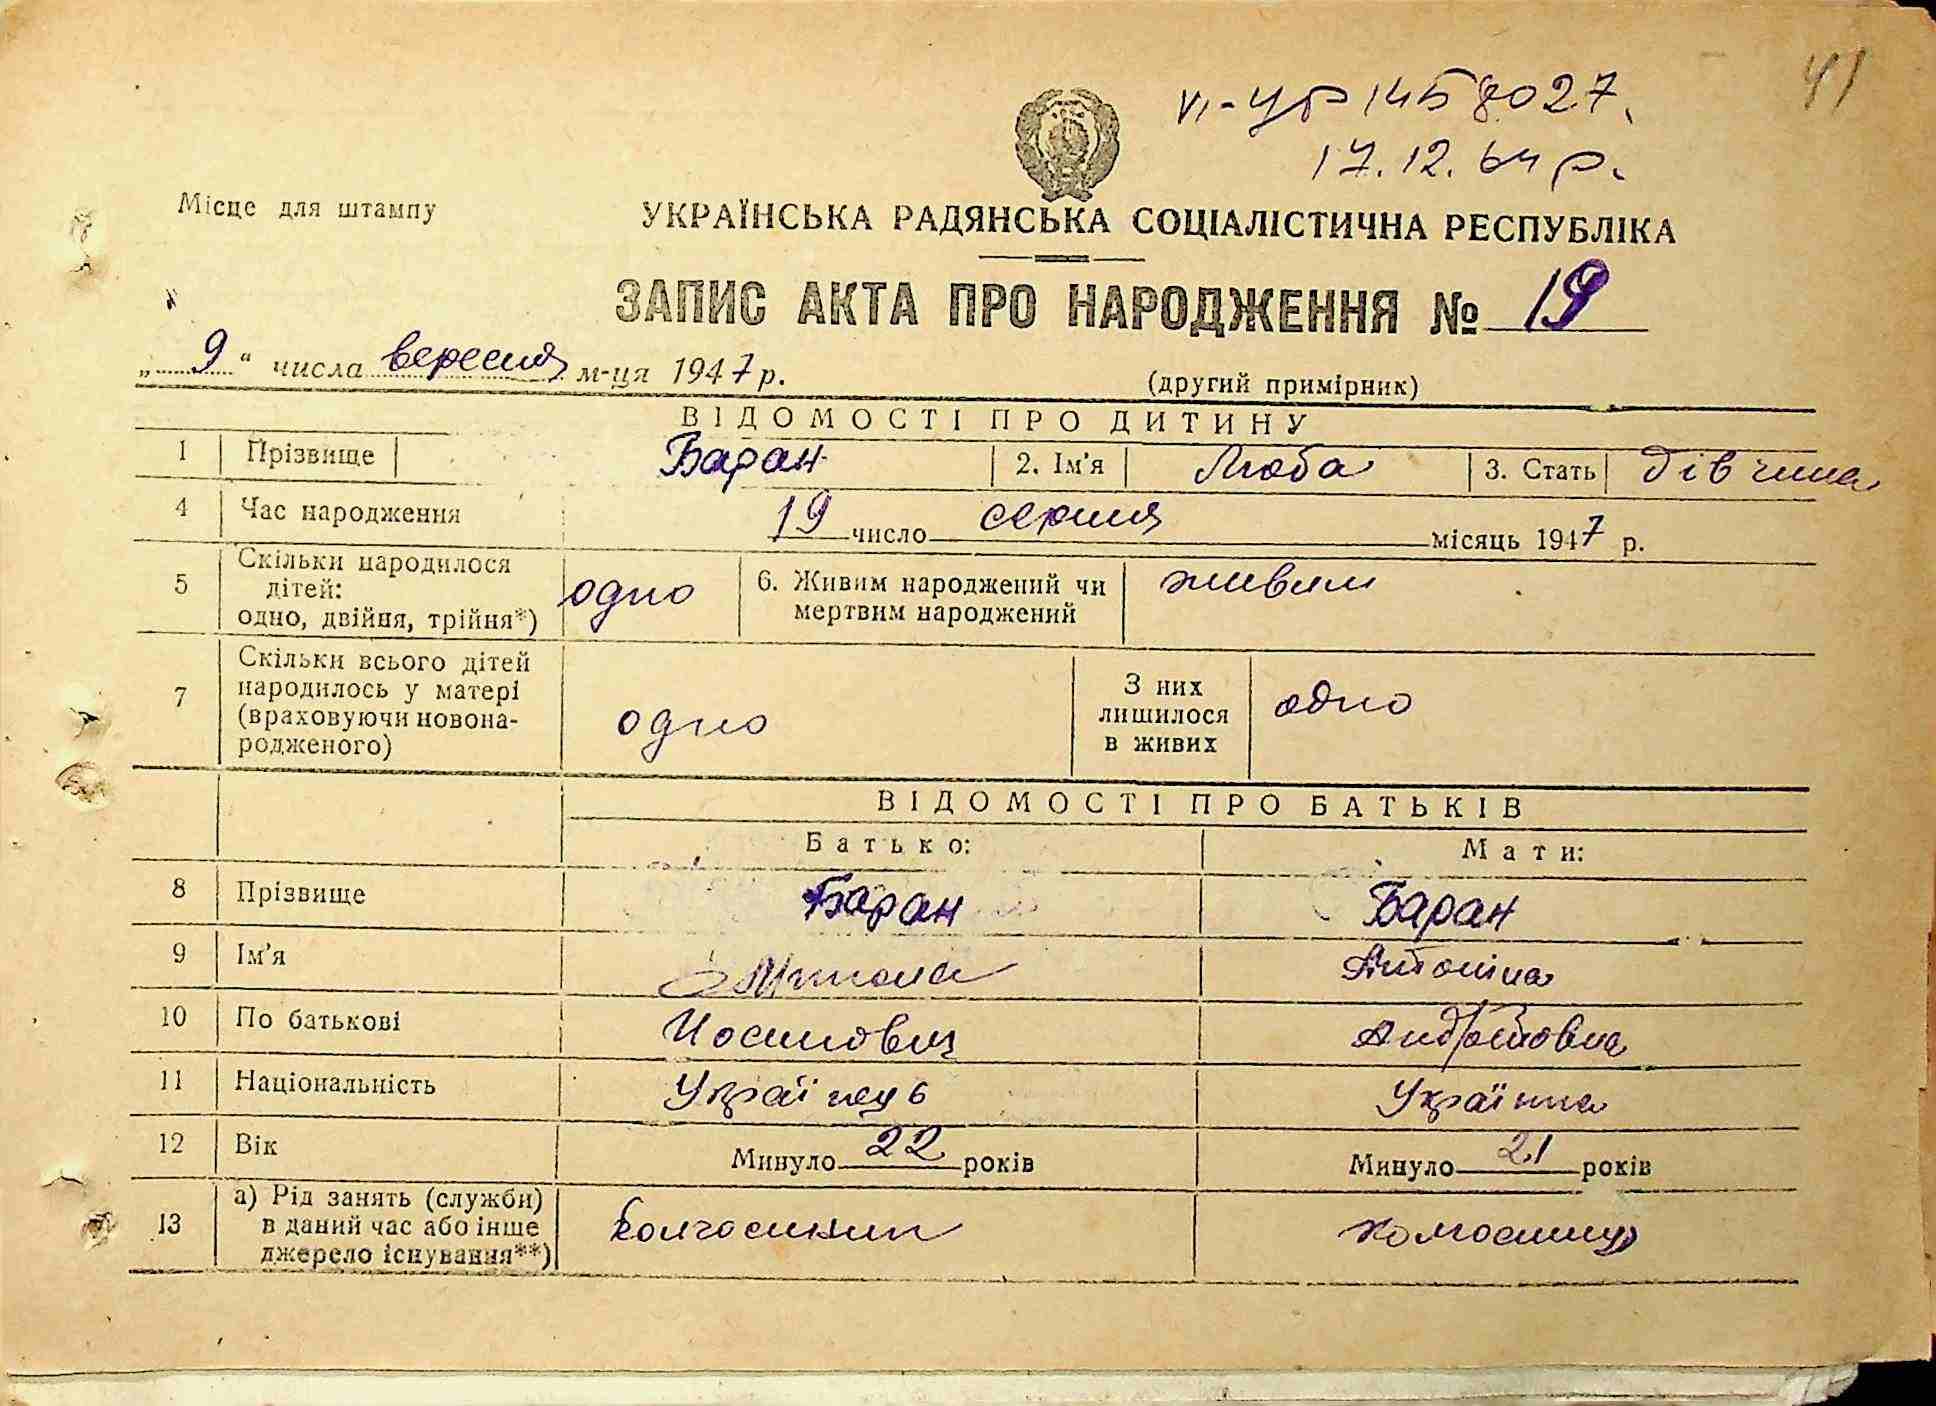 41
VI-УР 1458027.
17.12.64 р.
Місце для штампу
УКРАЇНСЬКА РАДЯНСЬКА СОЦІАЛІСТИЧНА РЕСПУБЛІКА
ЗАПИС АКТА ПРО НАРОДЖЕННЯ № 19
„ 9 “ числа вересня м-ця 1947 р.
(другий примірник)
ВІДОМОСТІ ПРО ДИТИНУ
1 Прізвище Баран 2. Ім'я Люба 3. Стать дівчина
4 Час народження 19 число серпня місяць 1947 р.
5 Скільки народилося дітей: одно, двійня, трійня*) одно 6. Живим народжений чи мертвим народжений живим
7 Скільки всього дітей народилось у матері (враховуючи новонародженого) одно З них лишилося в живих одно
ВІДОМОСТІ ПРО БАТЬКІВ
Батько: Мати:
8 Прізвище Баран Баран
9 Ім'я Микола Антоніна
10 По батькові Йосипович Андріївна
11 Національність Українець Українка
12 Вік Минуло 22 років Минуло 21 років
13 а) Рід занять (служби) в даний час або інше джерело існування**) колгоспник колгоспниця